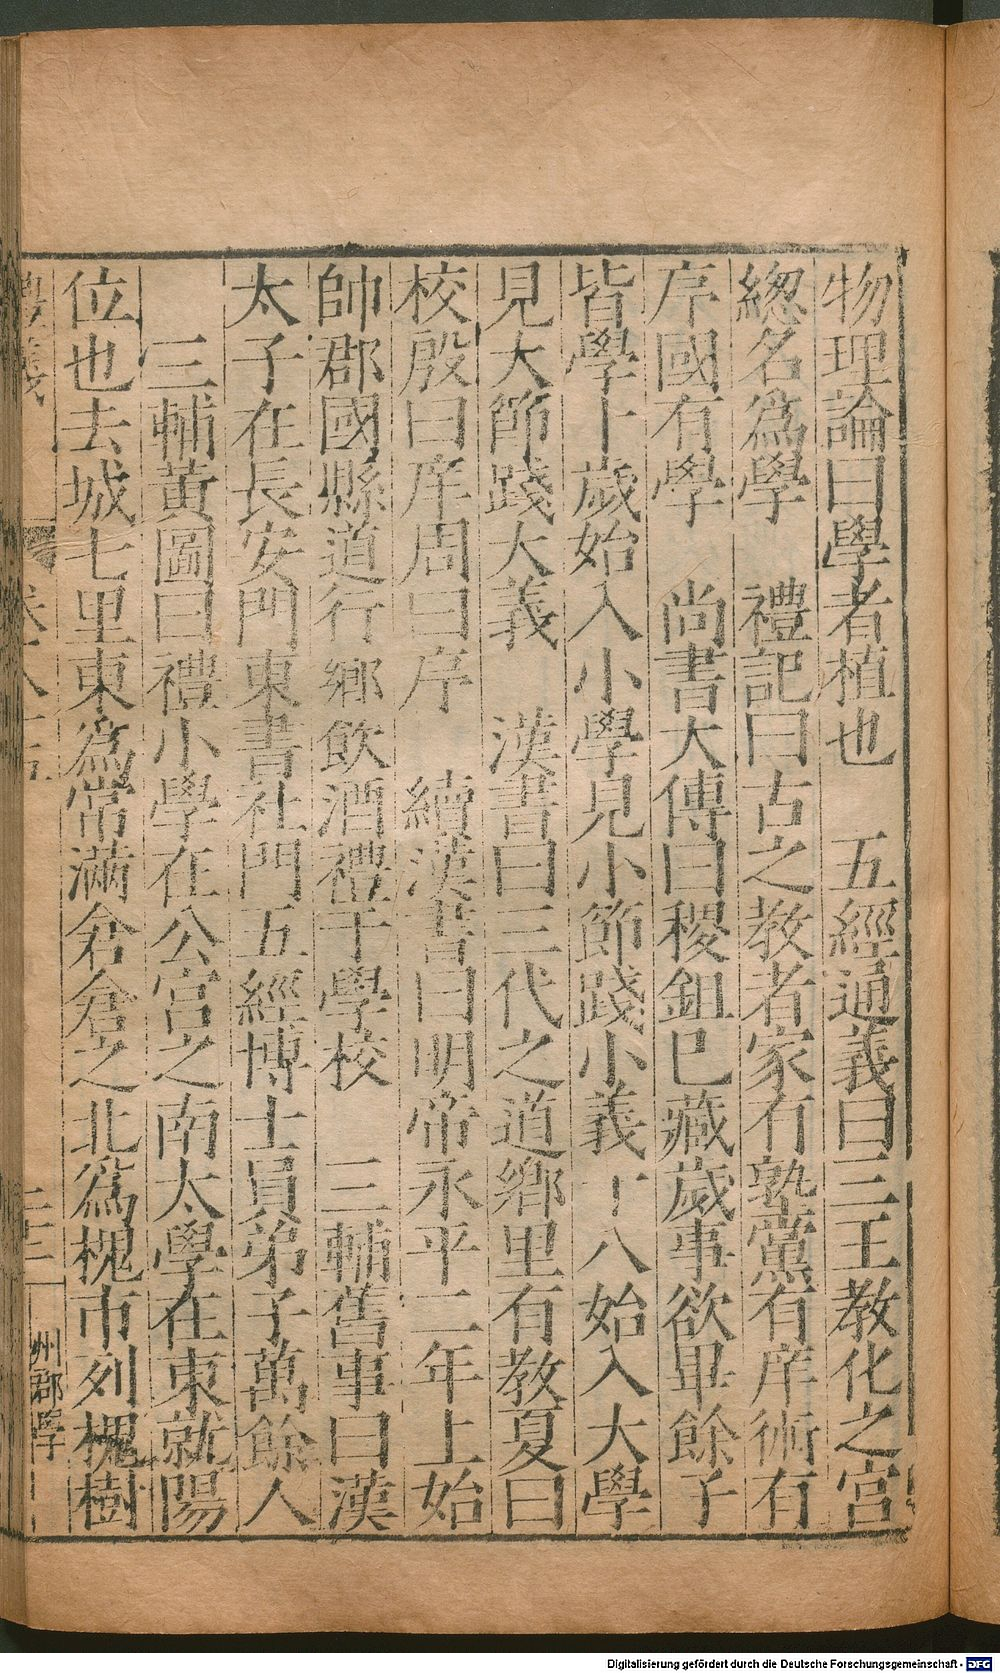 物理論曰學者植也　五經通義曰三王教化之宮
緫名爲學　禮記曰古之教者家有塾黨有庠術有
序國有學　尚書大傳曰稷鉏已藏歲事欲畢餘子
皆學十歲始入小學見小節踐小義十八始入大學
見大節踐大義　漢書曰三代之道鄉里有教夏曰
校殷曰庠周曰序　續漢書曰明帝永平二年上始
帥郡國縣道行鄉飲酒禮于學校　三輔舊事曰漢
太子在長安門東書社門五經博士員弟子萬餘人
三輔黃圖曰禮小學在公宮之南太學在東就陽
位也去城七里東爲常滿倉倉之北爲槐市列槐樹
州郡學
Digitalisierung gefördert durch die Deutsche Forschungsgemeinschaft - DFG